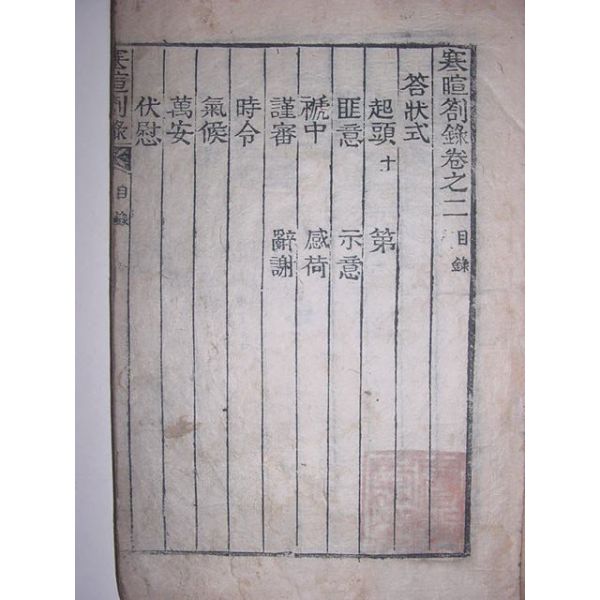 寒暄劄錄卷之二 目錄
答狀式
起頭 十 第
匪意 示意
褫中 感荷
謹審 辭謝
時令
氣候
萬安
伏慰
寒暄劄錄 目錄